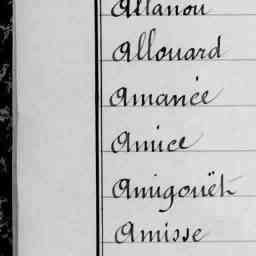 Allanou
Allouard
Amanée
Amice
Amigouët
Amisse